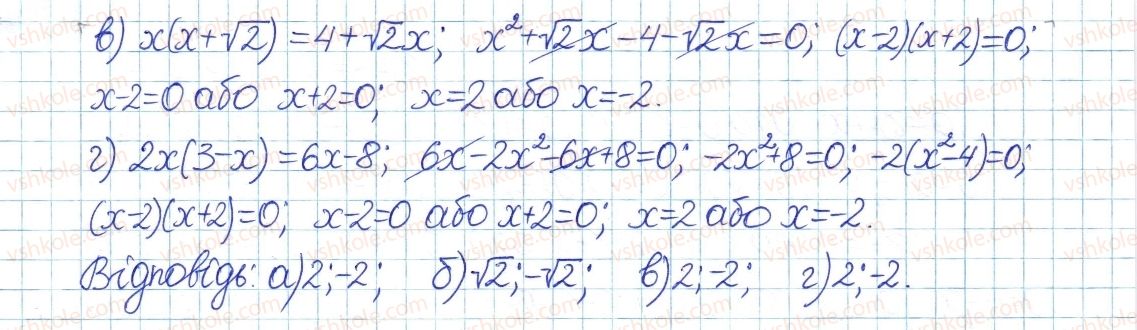 в) x(x+√2)=4+√2x; x²+√2x-4-√2x=0; (x-2)(x+2)=0;
x-2=0 або x+2=0; x=2 або x=-2.
г) 2x(3-x)=6x-8; 6x-2x²-6x+8=0; -2x²+8=0; -2(x²-4)=0;
(x-2)(x+2)=0; x-2=0 або x+2=0; x=2 або x=-2.
Відповідь: а) 2;-2; б) √2;-√2; в) 2;-2; г) 2;-2.